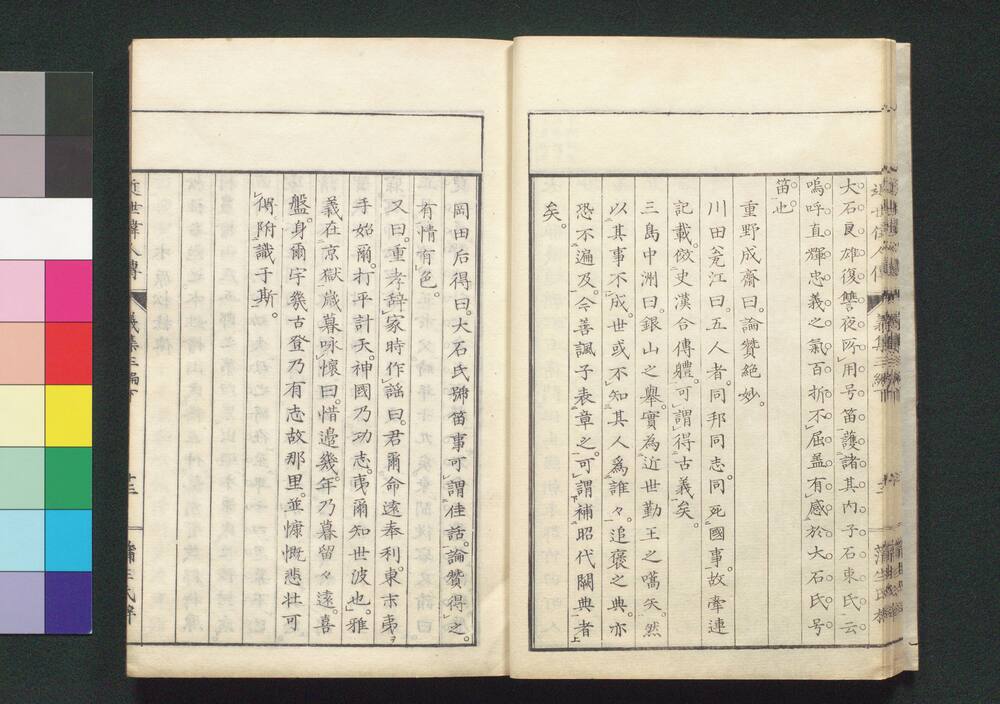 大石良雄復讐夜所用号笛。護諸其内子石束氏云。
嗚呼直輝忠義之氣百折不屈。盖有感於大石氏号
笛也。
重野成齋曰。論贊絶妙。
川田瓮江曰。五人者。同邦同志。同死國事。故牽連
記載。倣史漢合傳體。可謂得古義矣。
三島中洲曰。銀山之舉。實為近世勤王之嚆矢。然
以其事不成。世或不知其人爲誰々。追褒之典。亦
恐不遍及。今善諷子表章之。可謂補昭代闕典者
矣。
岡田后得曰。大石氏号笛事可謂佳話。論贊得之。
有情有色。
又曰。重孝辭家時作謡曰。君爾命遠奉利。東夫夷
手始爾。打平計天。神國乃功志。夷爾知世波也。雅
義在京獄。歳暮咏懷曰。惜邉幾。年乃暮留々遠。喜
盤。身爾字幾古登乃有志故那里。並慷慨悲壮可
傳。附識于斯。
近世偉人傳
義集三編下
廿三
蒲生氏梓